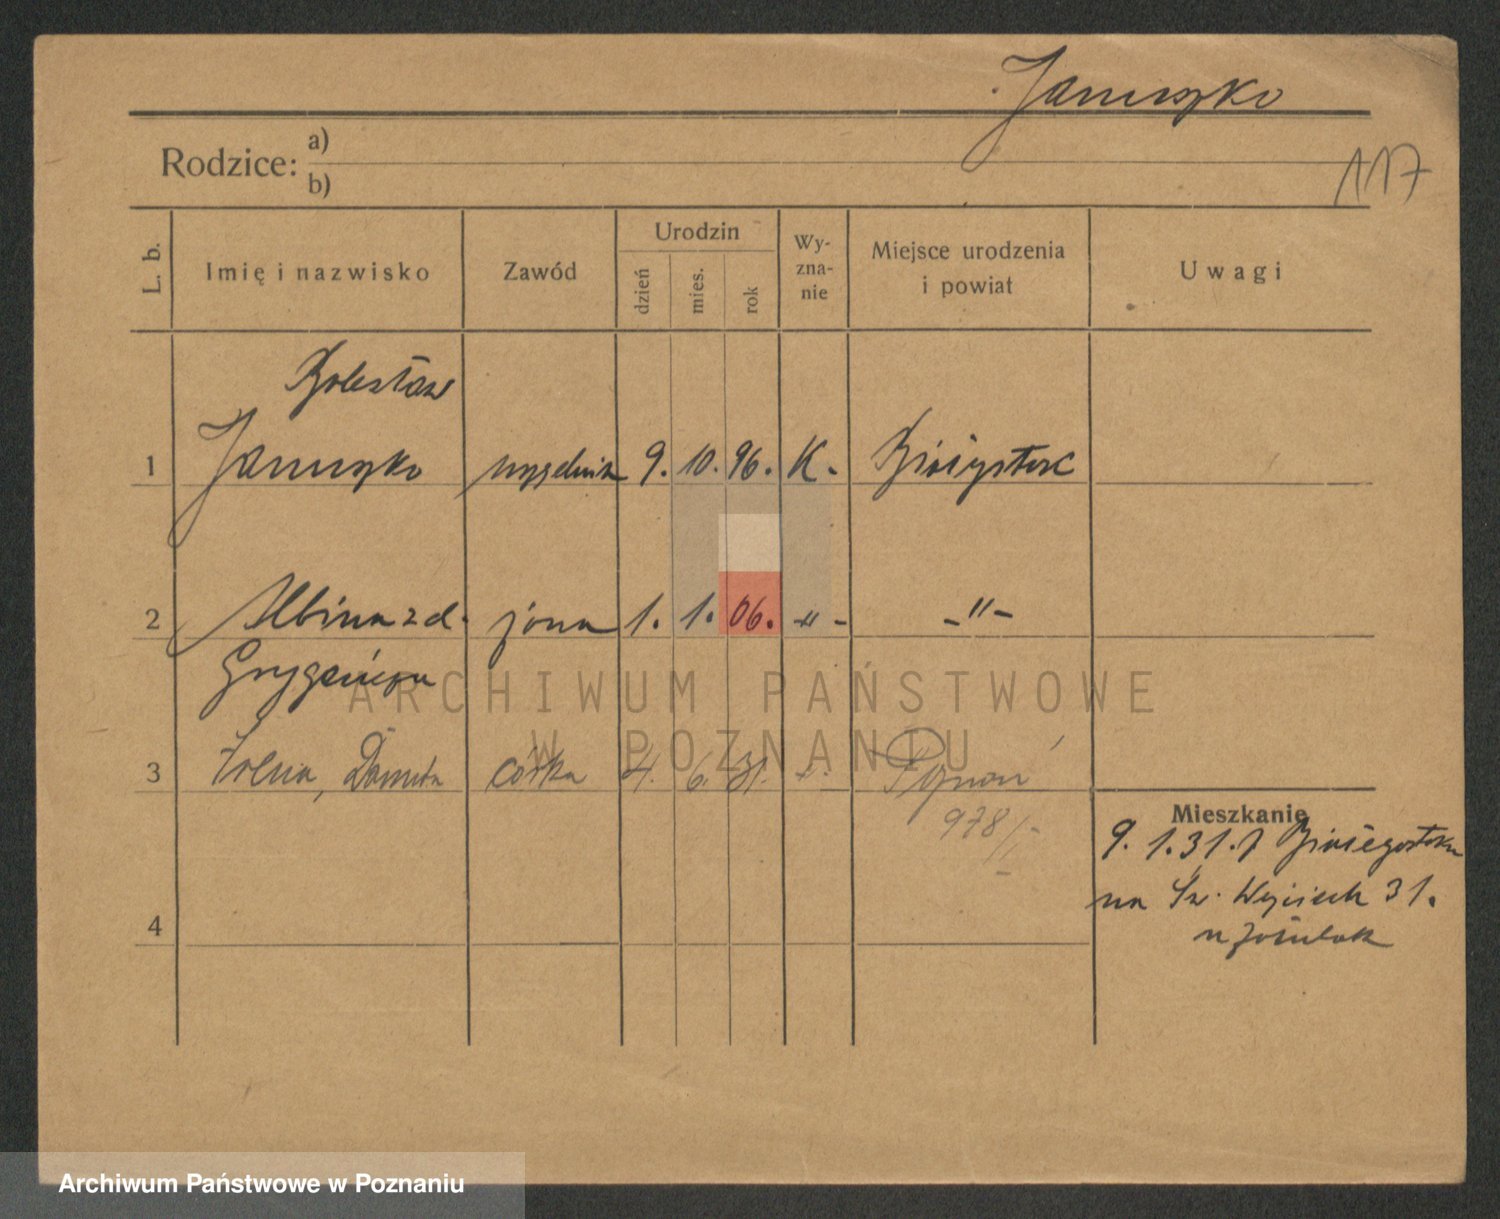 Januszko
117
Rodzice: a)
b)
L. b. Imię i nazwisko Zawód Urodzin dzień mies. rok Wy-zna-nie Miejsce urodzenia i powiat Uwagi
Bolesław
1 Januszko urzędnik 9. 10. 96. K. Białystok
2 Albina z d. żona 1. 1. 06. -"- -"-
ARCHIWUM PAŃSTWOWE
W POZNANIU
3 Danuta córka 4. 6. 31. Poznań
978/
Mieszkanie
9. 1. 31. z Białegostoku
na Św. Wojciech 31.
4
Archiwum Państwowe w Poznaniu